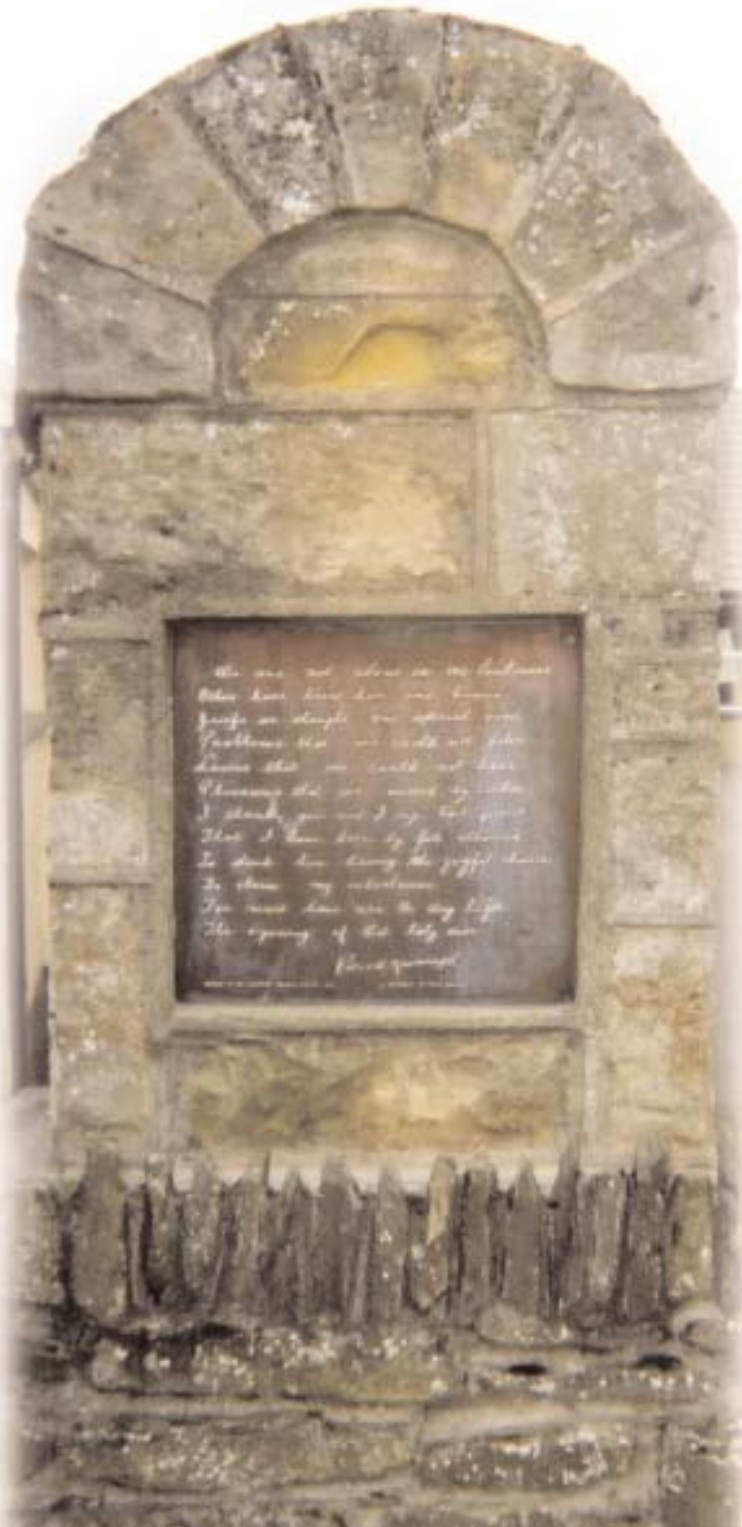 We are not alone in our loneliness
Others have been here and known
Griefs we thought our special own
Problems that we could not solve
Lovers that we could not have
Pleasures that we missed by inches
I thank you and I say how proud
That I have been by fate allowed
To stand here having the joyful chance
To claim my inheritance
For most have died the day before
The opening of that holy door